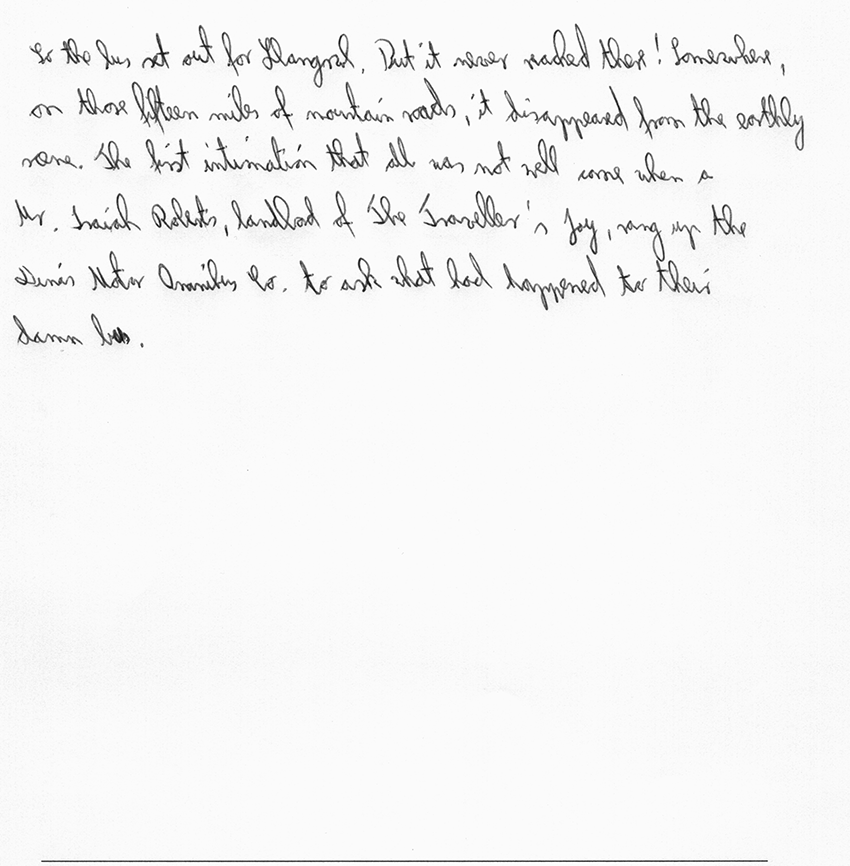 So the bus set out for Llangrwl. But it never reached there! Somewhere,
on those fifteen miles of mountain roads, it disappeared from the earthly
scene. The first intimation that all was not well came when a
Mr. Isaiah Roberts, landlord of The Traveller's Joy, rang up the
Dinas Motor Omnibus Co. to ask what had happened to their
damn bus.